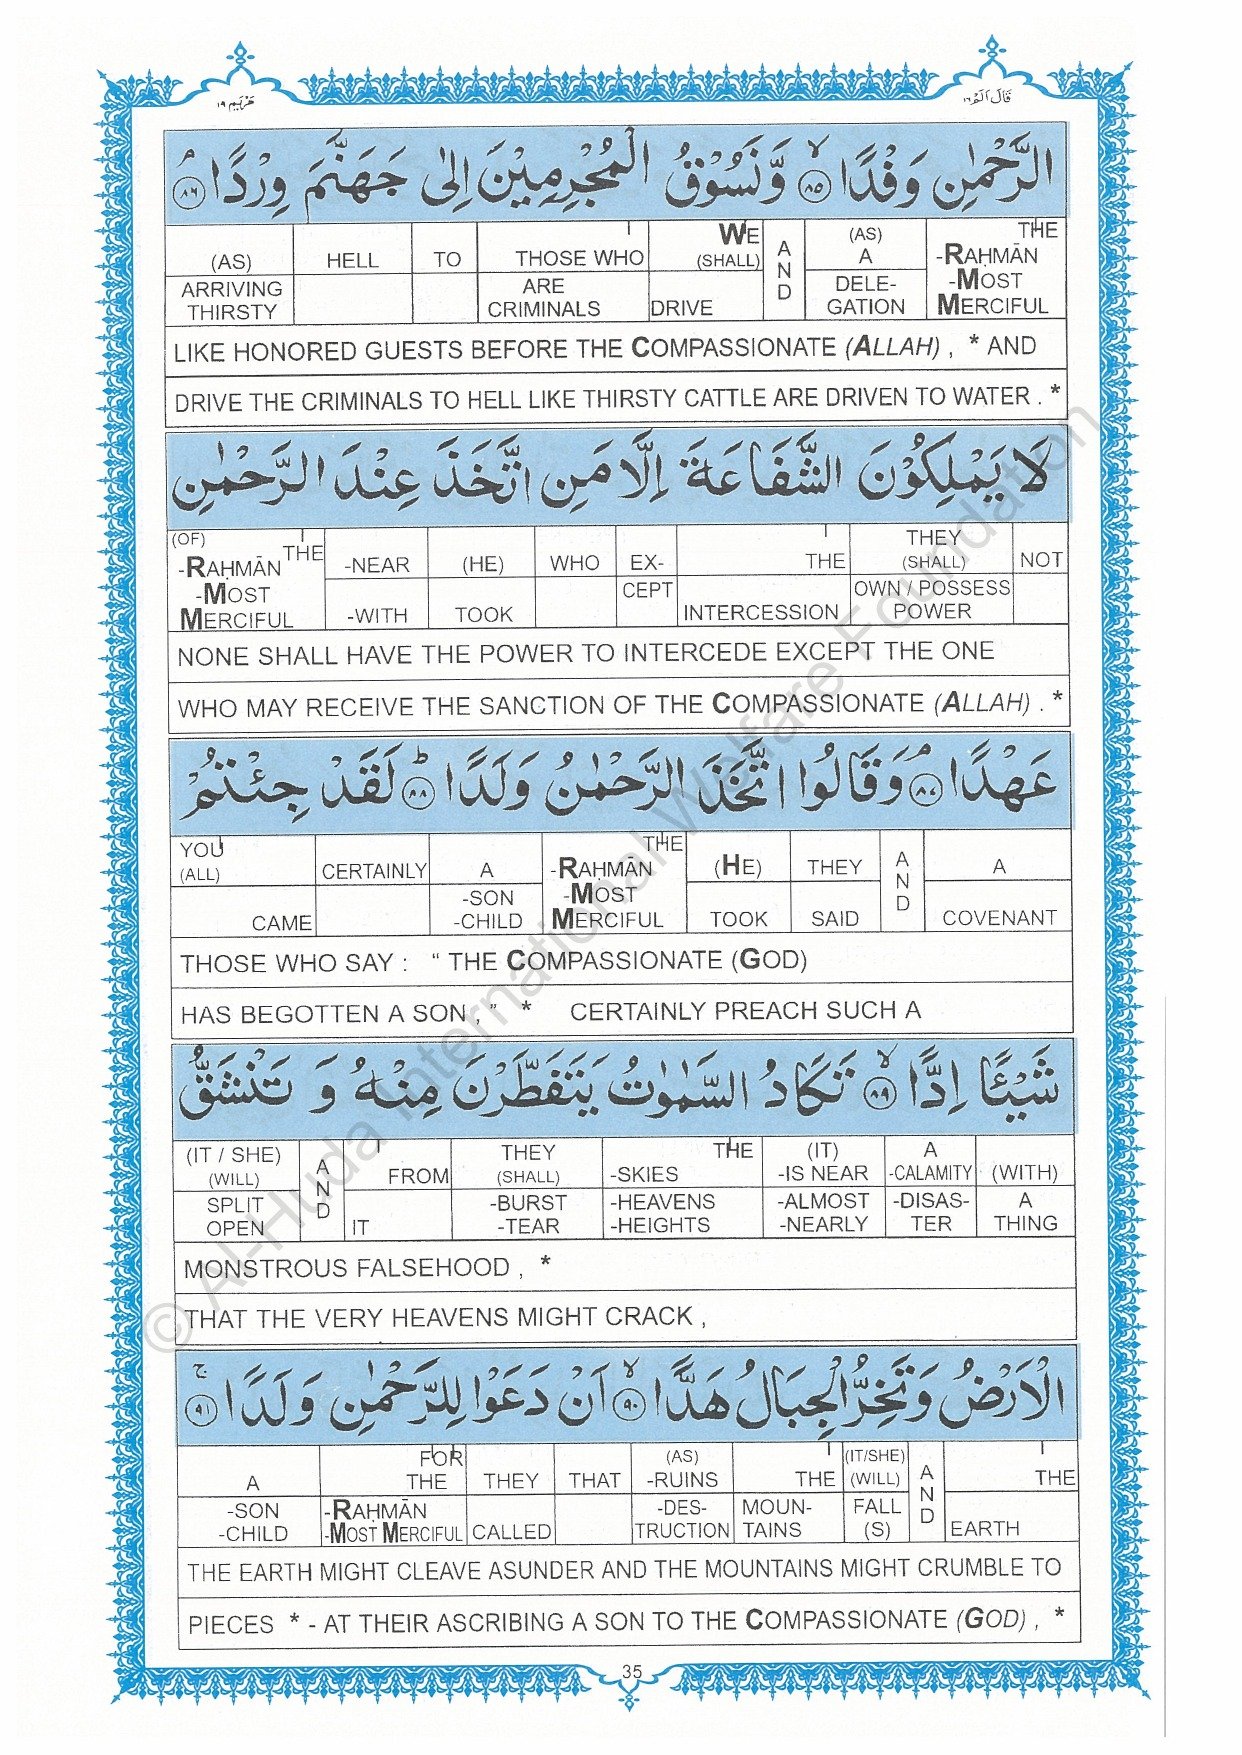 مَرْيَم ١٩
قَالَ اَلَمْ ١٦
الرَّحْمٰنِ وَفْدًا ۙ﴿٨٥﴾ وَّنَسُوْقُ الْمُجْرِمِيْنَ اِلٰى جَهَنَّمَ وِرْدًا ۘ﴿٨٦﴾
(AS) HELL TO THOSE WHO WE (SHALL) AND (AS) A THE -RAḤMĀN -MOST MERCIFUL
ARRIVING THIRSTY ARE CRIMINALS DRIVE DELE- GATION
LIKE HONORED GUESTS BEFORE THE COMPASSIONATE (ALLAH) , * AND
DRIVE THE CRIMINALS TO HELL LIKE THIRSTY CATTLE ARE DRIVEN TO WATER . *
لَا يَمْلِكُوْنَ الشَّفَاعَةَ اِلَّا مَنِ اتَّخَذَ عِنْدَ الرَّحْمٰنِ
(OF) THE -RAḤMĀN -MOST MERCIFUL -NEAR (HE) WHO EX- THE THEY (SHALL) NOT
-WITH TOOK CEPT INTERCESSION OWN / POSSESS POWER
NONE SHALL HAVE THE POWER TO INTERCEDE EXCEPT THE ONE
WHO MAY RECEIVE THE SANCTION OF THE COMPASSIONATE (ALLAH) . *
عَهْدًا ۘ﴿٨٧﴾ وَقَالُوا اتَّخَذَ الرَّحْمٰنُ وَلَدًا ؕ﴿٨٨﴾ لَقَدْ جِئْتُمْ
YOU (ALL) CERTAINLY A THE -RAḤMĀN -MOST MERCIFUL (HE) THEY AND A
CAME -SON -CHILD TOOK SAID COVENANT
THOSE WHO SAY : “ THE COMPASSIONATE (GOD)
HAS BEGOTTEN A SON , ” * CERTAINLY PREACH SUCH A
شَيْـًٔا اِدًّا ۙ﴿٨٩﴾ تَكَادُ السَّمٰوٰتُ يَتَفَطَّرْنَ مِنْهُ وَ تَنْشَقُّ
(IT / SHE) (WILL) AND FROM THEY (SHALL) THE -SKIES (IT) -IS NEAR A -CALAMITY (WITH)
SPLIT OPEN IT -BURST -TEAR -HEAVENS -HEIGHTS -ALMOST -NEARLY -DISAS- TER A THING
MONSTROUS FALSEHOOD , *
THAT THE VERY HEAVENS MIGHT CRACK ,
الْاَرْضُ وَتَخِرُّ الْجِبَالُ هَدًّا ۙ﴿٩٠﴾ اَنْ دَعَوْا لِلرَّحْمٰنِ وَلَدًا ۚ﴿٩١﴾
A FOR THE THEY THAT (AS) -RUINS THE (IT/SHE) (WILL) AND THE
-SON -CHILD -RAḤMĀN -MOST MERCIFUL CALLED -DES- TRUCTION MOUN- TAINS FALL (S) EARTH
THE EARTH MIGHT CLEAVE ASUNDER AND THE MOUNTAINS MIGHT CRUMBLE TO
PIECES * - AT THEIR ASCRIBING A SON TO THE COMPASSIONATE (GOD) , *
35
© Al-Huda International Welfare Foundation